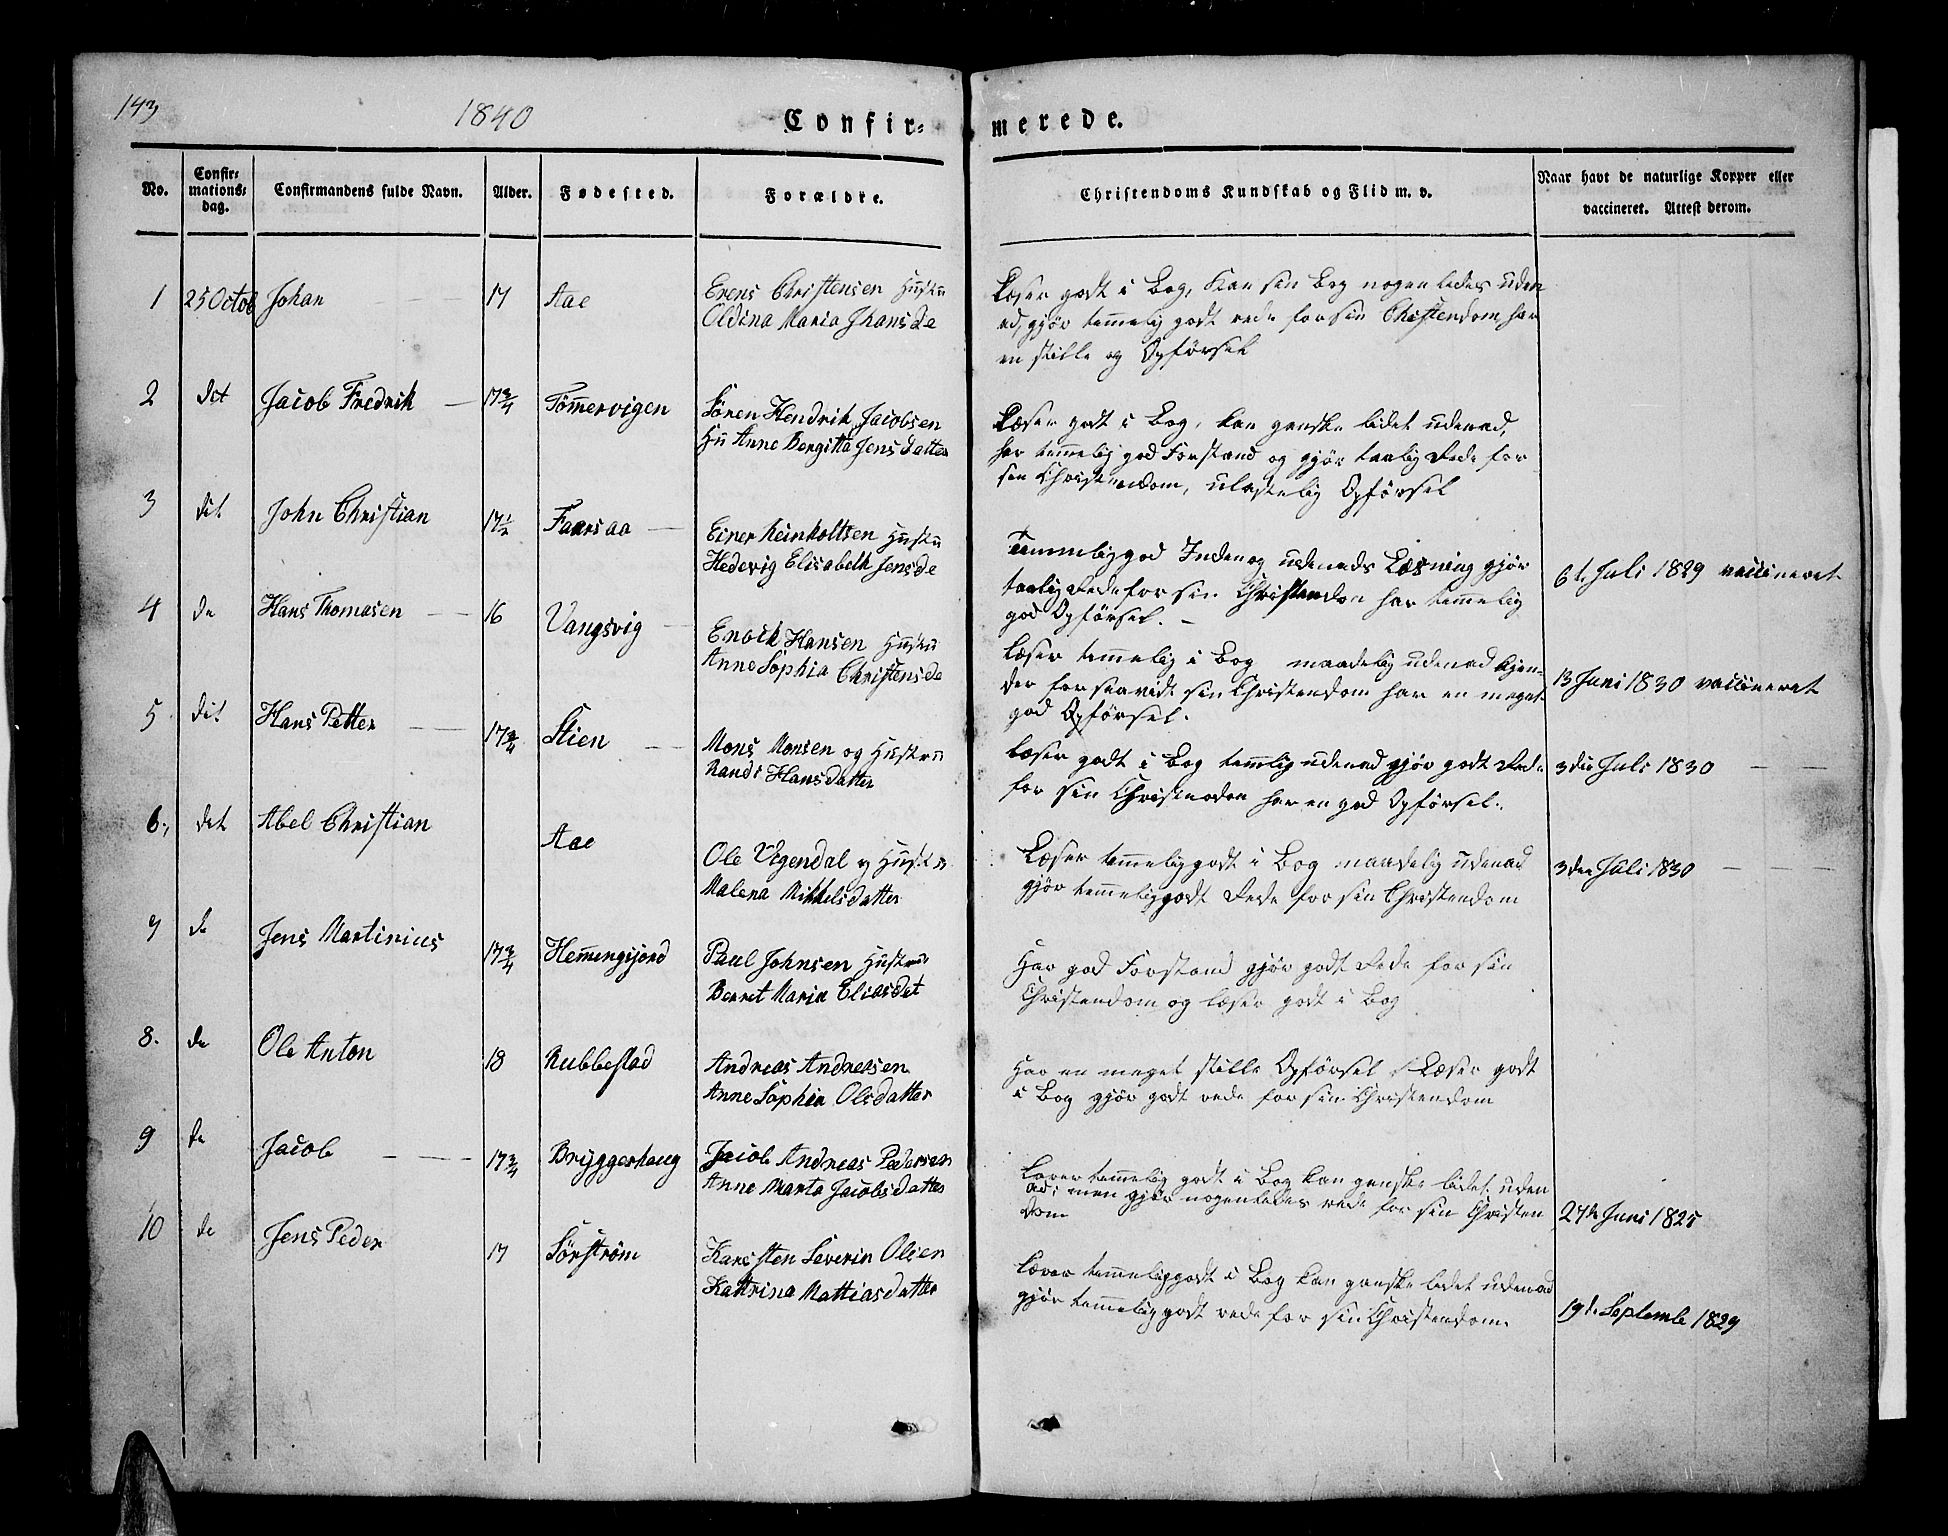 143
1840
Confir-
merede.
No.
Confir-
mations-
dag.
Confirmandens fulde Navn.
Alder.
Fødested.
Forældre.
Christendoms Kundskab og Flid m. v.
Naar havt de naturlige Kopper eller
vaccineret. Attest derom.
1 25 Octob Johan 17 Aae
Erens Christensen Hustru
Oldina Maria Jhansda
Læser godt i Bog, kan sin Bog nogenledes uden-
ad, gjør temelig godt rede for sin Christendom, har
en stille og Opførsel
2 det Jacob Fredrik 17¾ Tømmervigen
Søren Hendrik Jacobsen
Hu Anne Bergitta Jensdatter
Læser godt i Bog, kan ganske lidet udenad,
har temmelig god Forstand og gjør taalig Rede for
sin Christendom, ulastelig Opførsel
3 det John Christian 17½ Faarsaa
Einer Reinholtsen Hustu
Hedevig Elisabeth Jensda
Temmelig god Inden og udenads Læsning gjør
taalig Rede for sin Christendon har temmelig
god Opførsel.
6t Juli 1829 vaccineret
4 de Hans Thomasen 16 Vangsvig
Enoch Hansen Hustru
Anne Sophia Christensda
Læser temmelig i Bog maadelig udenad kjen-
der forsaavidt sin Christendom har en meget
god Opførsel.
13 Juni 1830 vaccineret
5. det Hans Petter 17¾ Stien
Mons Monsen og Hustru
Randi Hansdatter
Læser godt i Bog temlig udenad gjør godt Rede
for sin Christendon har en god Opførsel.
3die Juli 1830
6., det Abel Christian Aae
Ole Vegendal og Hustru
Malena Mikkelsdatter
Læser temmelig godt i Bog maadelig udenad
gjør temmelig godt Rede for sin Christendom
3die Juli 1830
7 de Jens Martinius 17¾ Hemmingsjord
Paul Johnsen Hustru
Berret Maria Eliasdet
Har god Forstand gjør godt Rede for sin
Christendom og læser godt i Bog
8. de Ole Anton 18 Rubbestad
Andreas Andreasen
Anne Sophia Olsdatter
Har en meget stille Opførsel Læser godt
i Bog gjør godt rede for sin Christendom
9 de Jacob 17¾ Bryggeshaug
Jacob Andreas Pedersen
Anne Marta Jacobsdatter
Læser temmelig godt i Bog kan ganske lidet uden
ad; men gjør nogenledes rede for sin Christen
dom
27de Juni 1825
10 de Jens Peder 17 Sørstrøm
Karsten Severin Olsen
Kattrina Mattiasdatter
Læser temmelig godt i Bog kan ganske lidet udenad
gjør temmelig godt rede for sin Christendom.
19t. Septemb 1829